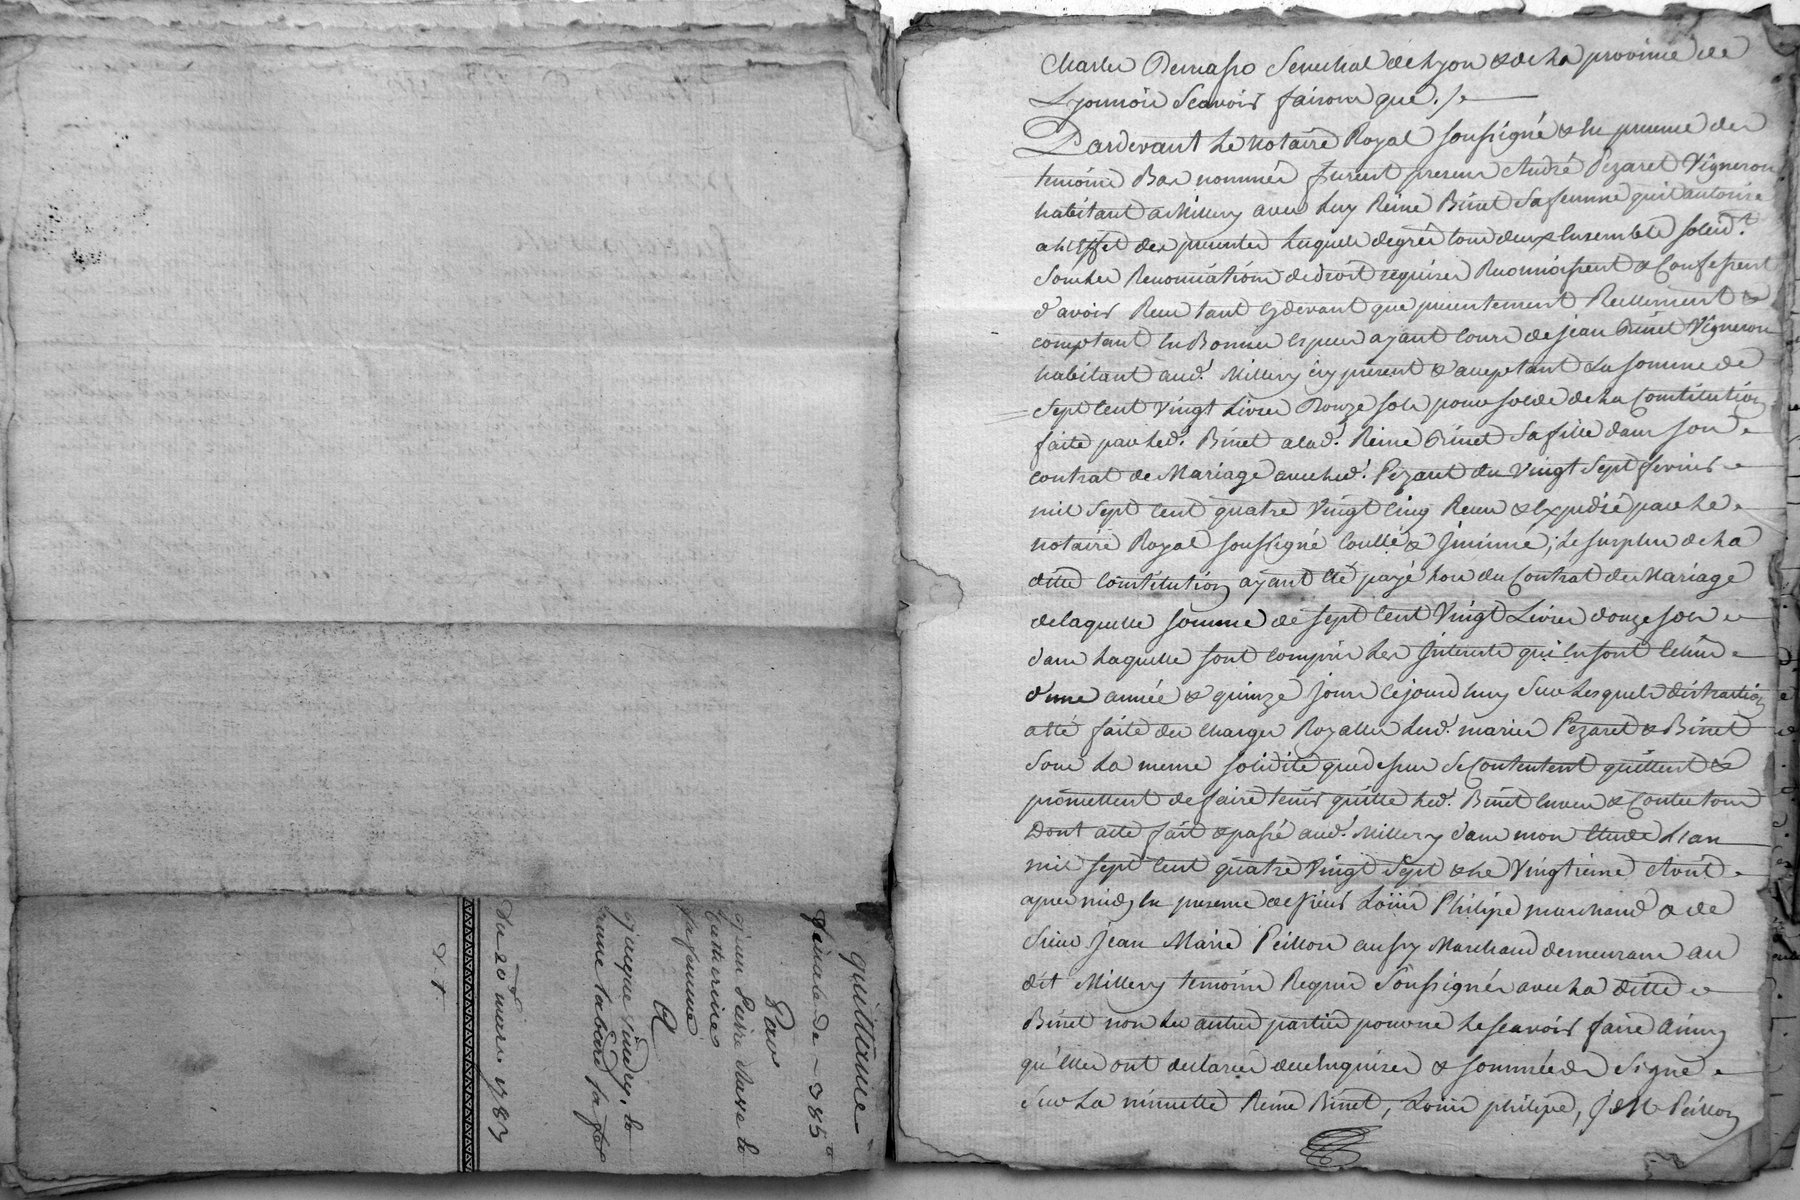 quittance
finale de ~ 385lt
Par
Jean Pierre
Catherine
sa femme
A
Jacque Jindry, &
anne tabard sa fe
Du 20e mars 1783
Charles Senechal de Lyon & de la province de
Lyonnois Scavoir faisons que. /.
Pardevant Le notaire Royal soussigné & En presence des
temoins Bas nommés furent presens André Pezaret Vigneron
habitant a Millery avec luy Reine Binet Sa femme qu'il autorise
a l'Effet des presentes Lesquels de gré tous deux Ensemble solid.t
Sous les Renonciations de droit requises Reconnoissent & Confessent
d'avoir Recu tant cydevant que presentement Reellement &
comptant En Bonnes Especes ayant Cours de jean Binet Vigneron
habitant aud.t Millery icy present & acceptant La somme de
Sept Cent Vingt Livres Douze sols pour solde de La Constitution
faite par led.t Binet a lad.te Reine Binet Sa fille dans son
contrat de Mariage avec led.t Pezaret du Vingt Sept fevrier
mil Sept Cent quatre Vingt Cinq Recu & Expedié par Le
notaire Royal soussigné Collé & ; Le surplus de La
ditte Constitution ayant Eté payé lors du Contrat de Mariage
de laquelle somme de sept Cent Vingt Livres douze sols
dans Laquelle sont Compris Les Interets qui En sont Echus
d'une année & quinze jours Cejourd'huy Sur Lesquels distraction
a Eté faite des Charges Royalles Lesd.ts mariés Pezaret & Binet
sous La meme solidité que dessus se Contentent quittent &
promettent de faire tenir quitte led.t Binet Envers & Contre tous
Dont acte fait & passé aud.t Millery dans mon Etude L'an
mil sept Cent quatre Vingt Sept & le Vingtieme Août
apres midy En presence de sieur Loüis Philipe marchand & de
Sieur Jean Marie Peillon aussy Marchand demeurans au
dit Millery temoins Requis Soussignés avec La ditte
Binet non les autres parties pour ne Le Scavoir faire Ainsy
qu'elles ont declarés de ce Enquises & sommées Signé
Sur La minutte Reine Binet, Loüis philipe, J. M. Peillon